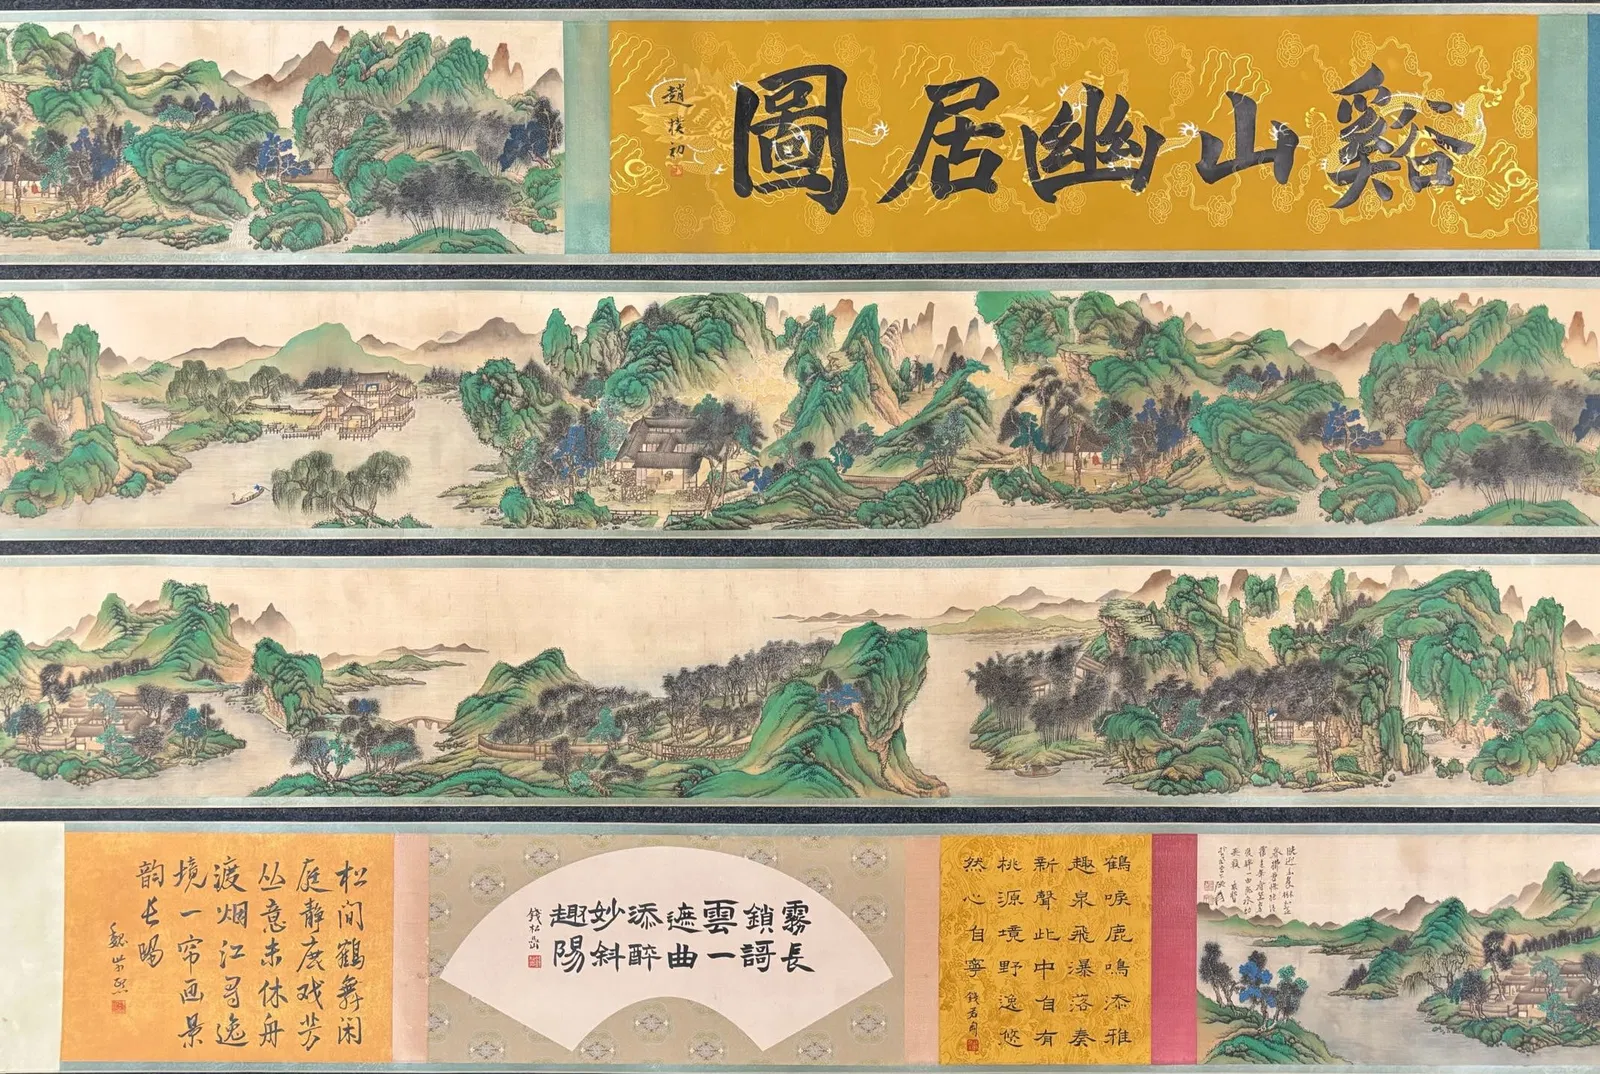 谿山幽居圖
趙樸初
鶴唳鹿鳴添雅
趣泉飛瀑落奏
新聲此中自有
桃源境野逸悠
然心自寧
錢君匋
霧鎖雲遮添妙趣
長謌一曲醉斜陽
錢松喦
松间鶴舞闲
庭静鹿戏芳
丛意未休舟
渡烟江寻逸
境一帘画景
韵長
魏紫熙